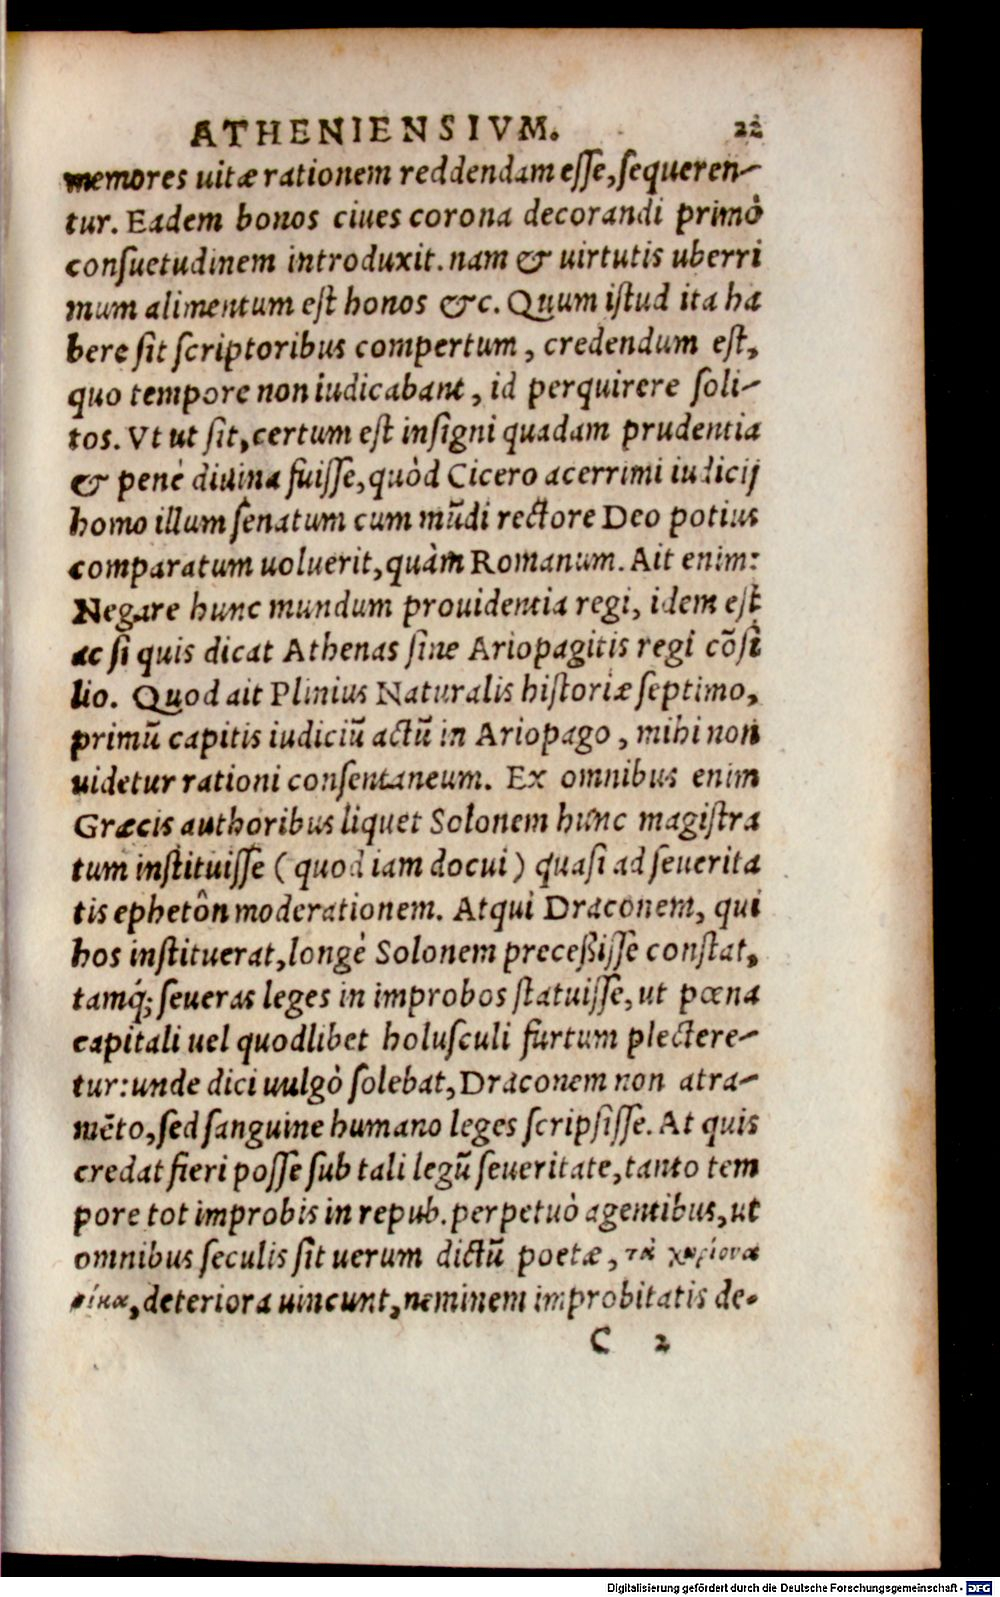 ATHENIENSIVM. 22
memores uitæ rationem reddendam eſſe, ſequeren-
tur. Eadem bonos ciues corona decorandi primò
conſuetudinem introduxit. nam & uirtutis uberri
mum alimentum eſt honos &c. Quum iſtud ita ha
bere ſit ſcriptoribus compertum, credendum eſt,
quo tempore non iudicabant, id perquirere ſoli-
tos. Vt ut ſit, certum eſt inſigni quadam prudentia
& penè diuina fuiſſe, quòd Cicero acerrimi iudicij
homo illum ſenatum cum mũdi rectore Deo potius
comparatum uoluerit, quàm Romanum. Ait enim:
Negare hunc mundum prouidentia regi, idem eſt
ac ſi quis dicat Athenas ſine Ariopagitis regi cõſi
lio. Quod ait Plinius Naturalis hiſtoriæ ſeptimo,
primũ capitis iudiciũ actũ in Ariopago, mihi non
uidetur rationi conſentaneum. Ex omnibus enim
Græcis authoribus liquet Solonem hunc magiſtra
tum inſtituiſſe (quod iam docui) quaſi ad ſeuerita
tis ephetôn moderationem. Atqui Draconem, qui
hos inſtituerat, longè Solonem preceßiſſe conſtat,
tamq́; ſeueras leges in improbos ſtatuiſſe, ut pœna
capitali uel quodlibet holuſculi furtum plectere-
tur: unde dici uulgò ſolebat, Draconem non atra-
mẽto, ſed ſanguine humano leges ſcripſiſſe. At quis
credat fieri poſſe ſub tali legũ ſeueritate, tanto tem
pore tot improbis in repub. perpetuò agentibus, ut
omnibus ſeculis ſit uerum dictũ poetæ, τὰ
deteriora uincunt, neminem improbitatis de-
C 2
Digitalisierung gefördert durch die Deutsche Forschungsgemeinschaft - DFG